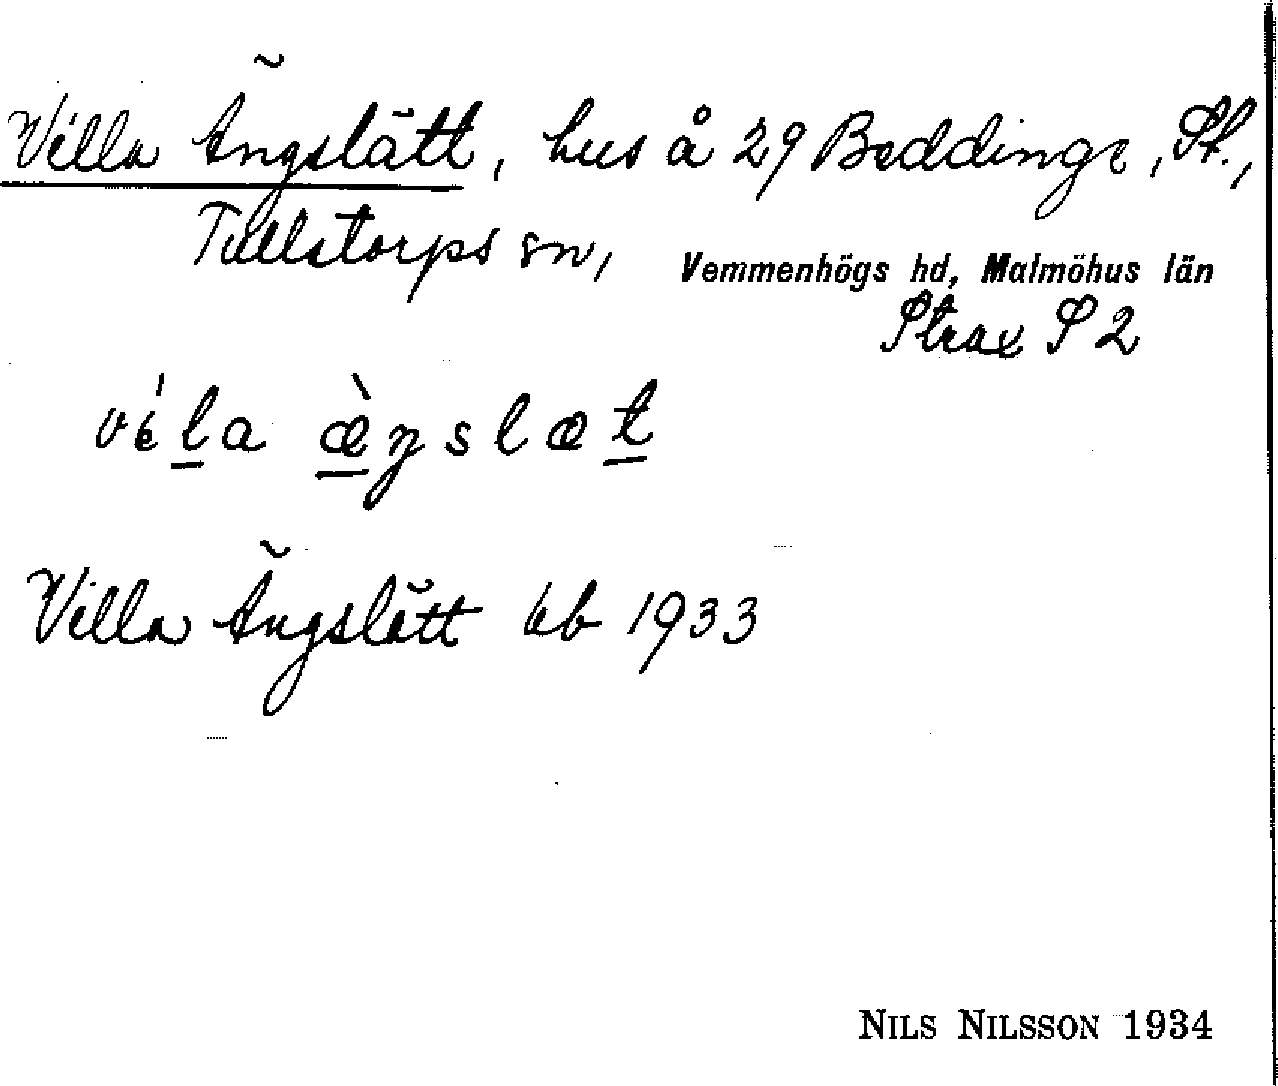 Villa Ängslätt, hus å 29 Beddinge, St.,
Tullstorps sn, Vemmenhögs hd, Malmöhus län
Strax S 2
véla æ̀ŋslæt
Villa Ängslätt kb 1933
NILS NILSSON 1934